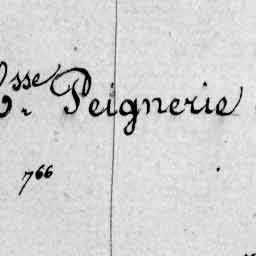 C.sse Peignerie
766